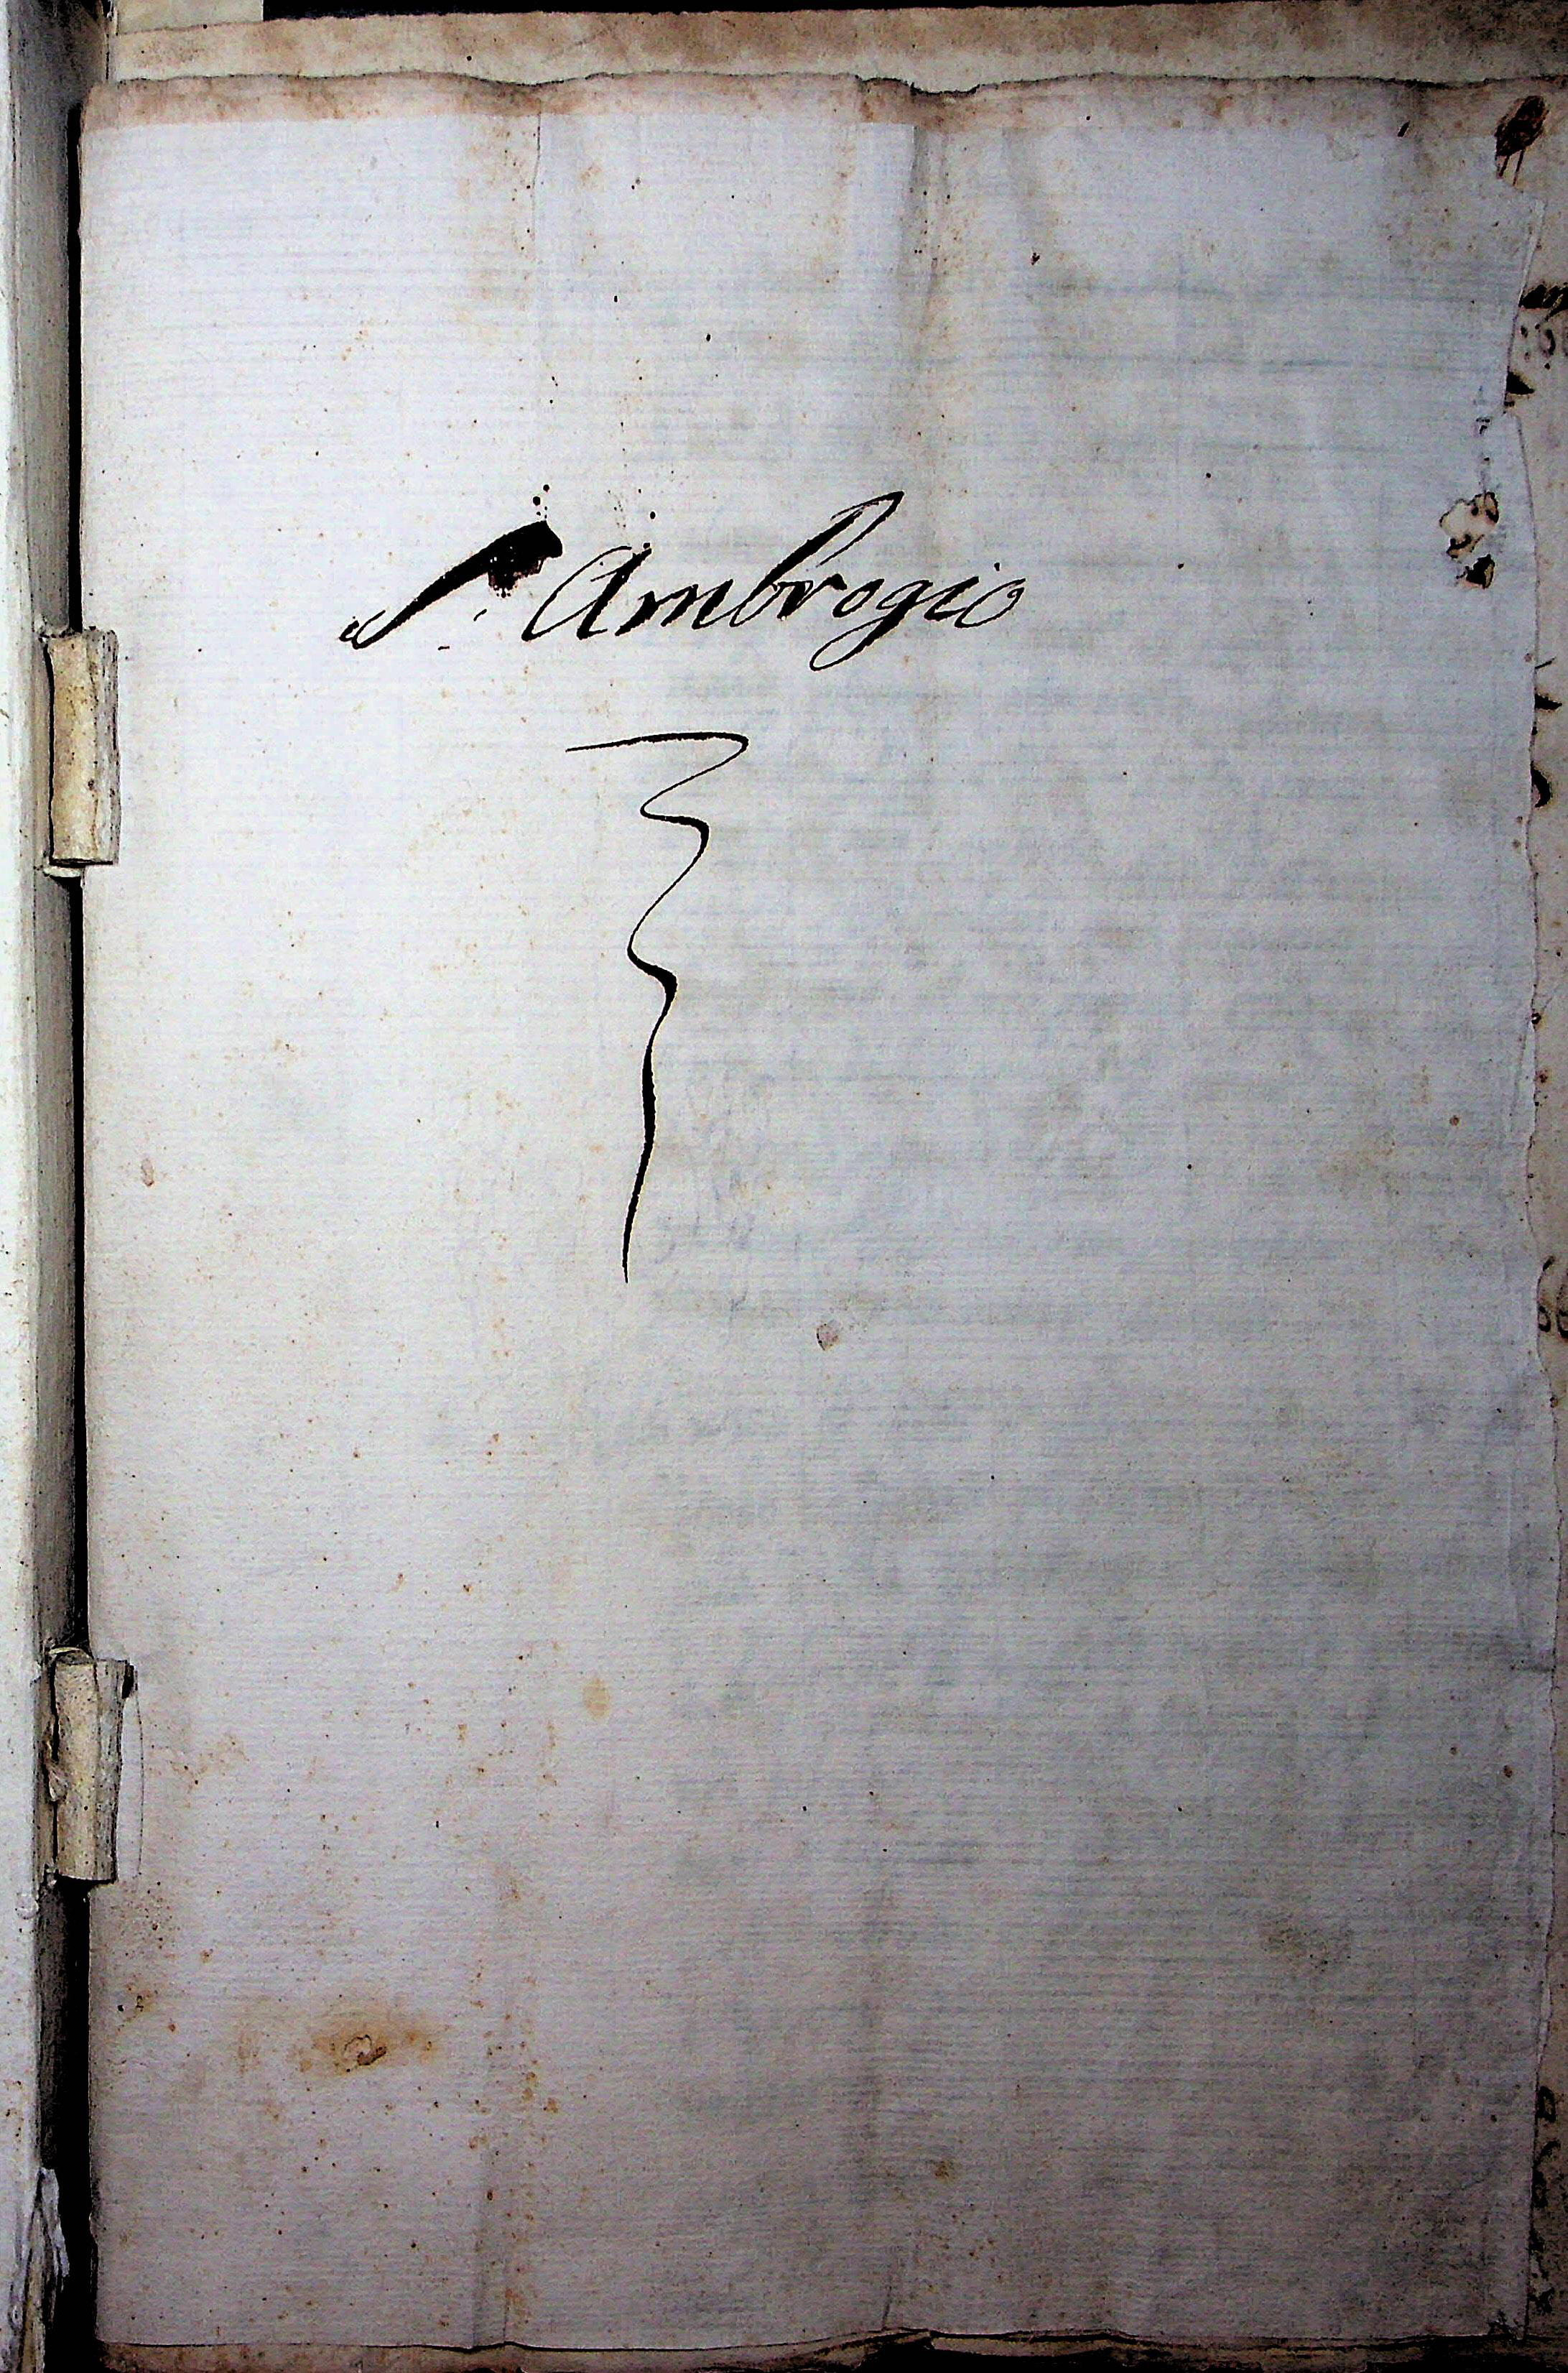 S. Ambrogio